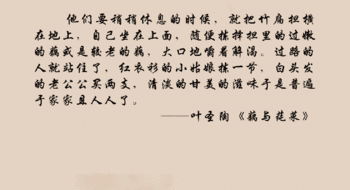 他们要稍稍休息的时候，就把竹扁担横
在地上，自己坐在上面，随便拣择担里的过嫩
的藕或是较老的藕，大口地嚼着解渴。过路的
人就站住了，红衣衫的小姑娘拣一节，白头发
的老公公买两支，清淡的甘美的滋味于是普遍
于家家且人人了。
——叶圣陶《藕与莼菜》